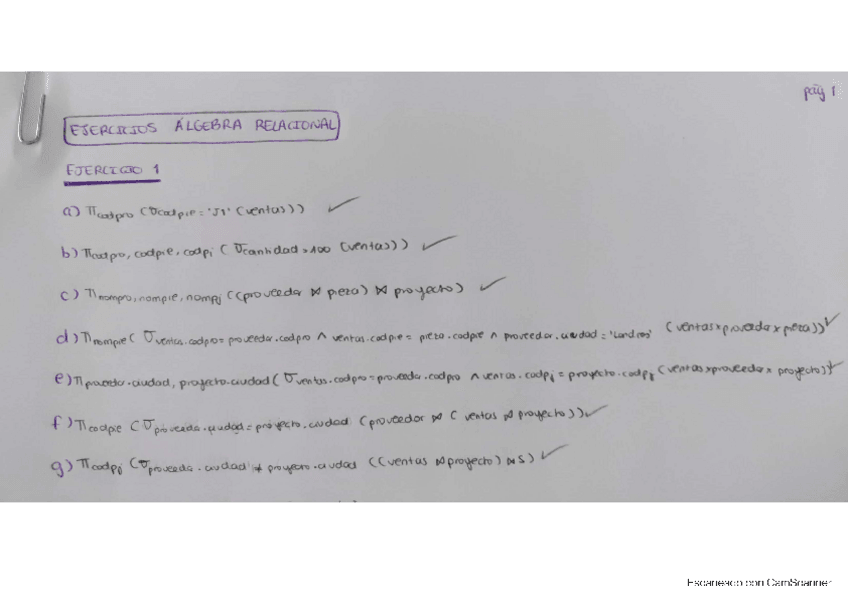 pág 1
EJERCICIOS ÁLGEBRA RELACIONAL
EJERCICIO 1
a) π codpro (σ codpie = 'J1' (ventas))
b) π codpro, codpie, codpj (σ cantidad > 100 (ventas))
c) π nompro, nompie, nompj ((proveedor ⋈ pieza) ⋈ proyecto)
d) π nompie (σ ventas.codpro = proveedor.codpro ∧ ventas.codpie = pieza.codpie ∧ proveedor.ciudad = 'Londres' (ventas x proveedor x pieza))
e) π proveedor.ciudad, proyecto.ciudad (σ ventas.codpro = proveedor.codpro ∧ ventas.codpj = proyecto.codpj (ventas x proveedor x proyecto))
f) π codpie (σ proveedor.ciudad = proyecto.ciudad (proveedor ⋈ (ventas ⋈ proyecto)))
g) π codpj (σ proveedor.ciudad ≠ proyecto.ciudad ((ventas ⋈ proyecto) ⋈ S)
Escaneado con CamScanner